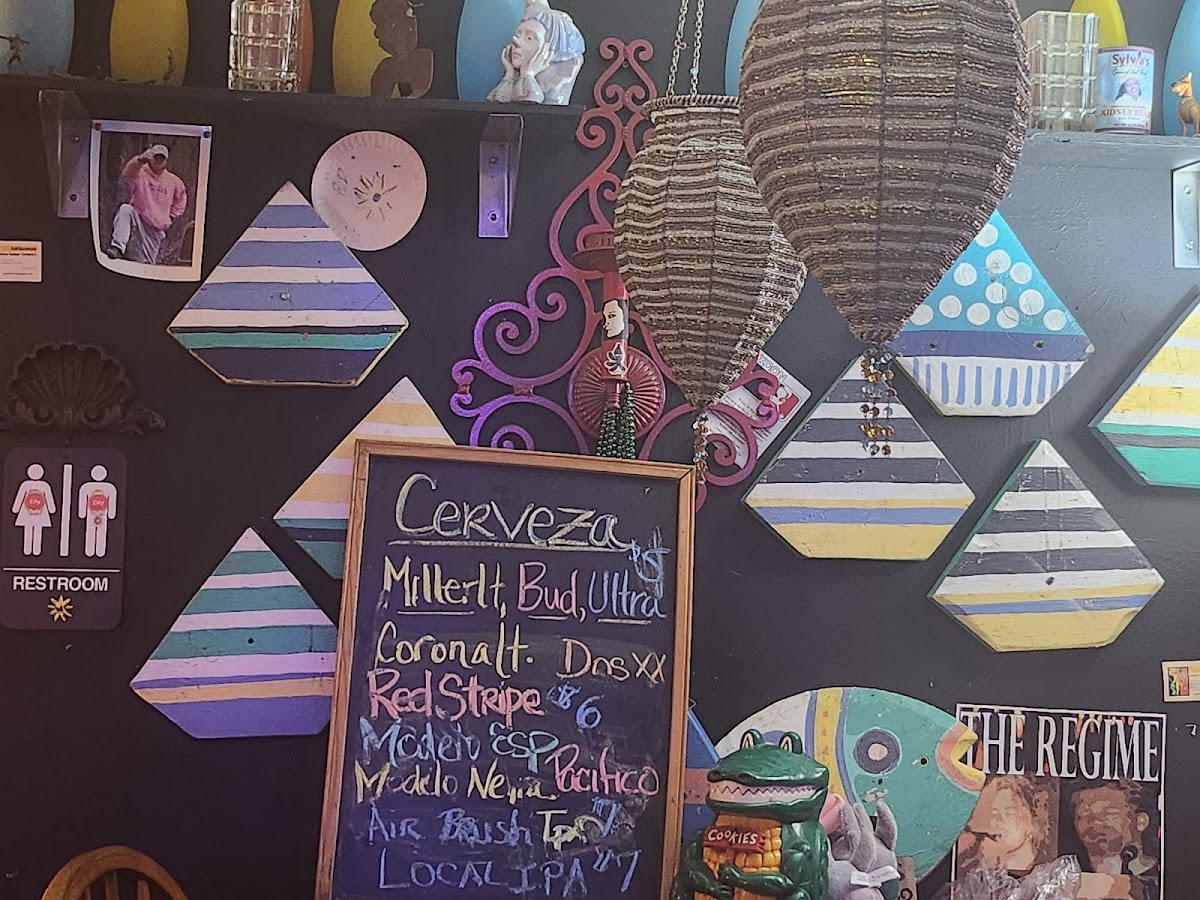 Sylvia's
KIDNEY BEANS
RESTROOM
Cerveza
$5
Miller lt, Bud, Ultra
Corona lt. Dos XX
Red Stripe $6
Modelo Esp
Modelo Negra Pacifico
Air Brush $7
LOCAL IPA $7
COOKIES
THE REGIME